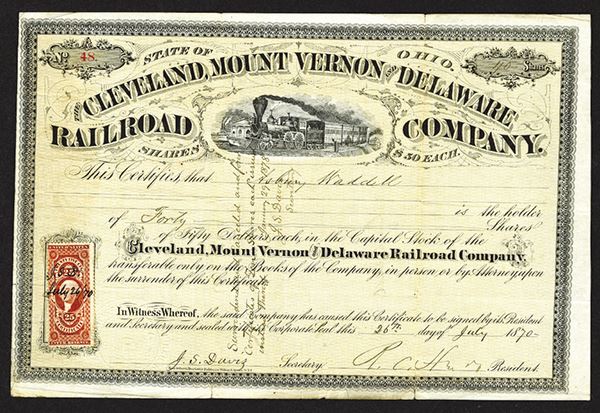 No 48.
STATE OF OHIO.
40 Shares
THE CLEVELAND, MOUNT VERNON and DELAWARE
RAILROAD COMPANY.
SHARES $50 EACH.
This Certifies, that Asbury Waddell
is the holder
of Forty Shares
of Fifty Dollars, each, in the Capital Stock of the
Cleveland, Mount Vernon and Delaware Railroad Company,
transferable only on the Books of the Company, in person or by Attorney, upon
the surrender of this Certificate.
In Witness Whereof, the said Company has caused this Certificate to be signed by its President
and Secretary and sealed with its Corporate Seal this 26th day of July 1870-
J. S. Davis Secretary. President.
J.S.D.
July 26 70
25
J.S. Davis